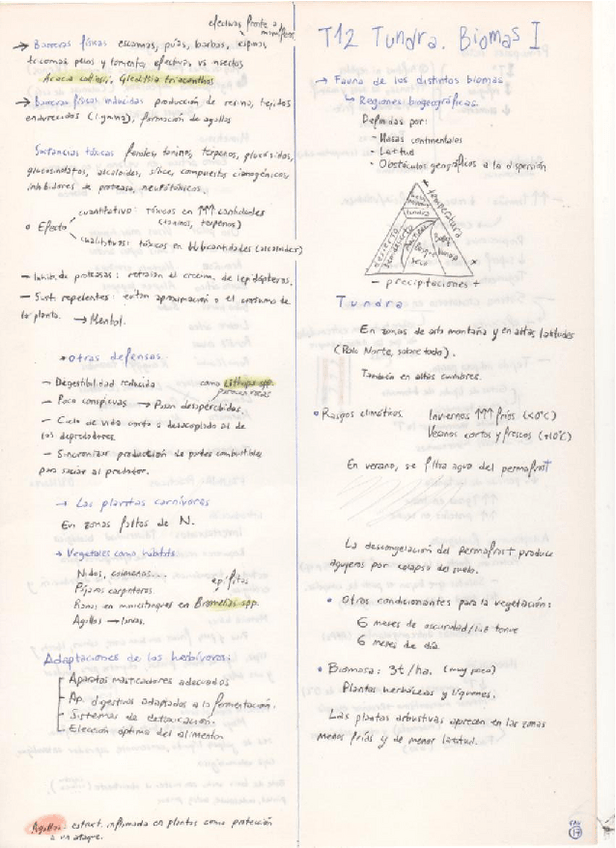 efectivas frente a
mamíferos
→ Barreras físicas escamas, púas, barbas, espinas,
tricomas pelos y tomento, efectiva vs insectos
Acacia collinsii, Gleditsia triacanthos
→ Barreras físicas inducidas producción de resina, tejidos
endurecidos (lignina), formación de agallas
Sustancias tóxicas fenoles, taninos, terpenos, glucósidos,
glucosinolatos, alcaloides, sílice, compuestos cianogénicos,
inhibidores de proteasa, neurotóxicos.
• Efecto
cuantitativo: tóxicos en ↑↑↑ cantidades
(taninos, terpenos)
cualitativas: tóxicos en ↓↓↓ cantidades (alcaloides)
- Inhib. de proteasas: retrasan el crecim. de lepidópteros.
- Sust. repelentes: evitan aproximación o el consumo de
la planta. → Mentol.
• Otras defensas:
- Digestibilidad reducida como Lithops spp.
- Poco conspicuas → Pasan desapercibidas.
- Ciclo de vida corto o desacoplado al de
los depredadores.
- Sincronizar producción de partes combustibles
para saciar al predator.
→ Las plantas carnívoras
En zonas faltas de N.
→ Vegetales como hábitats
Nidos, colmenas...
epífitas
Pájaros carpinteros.
Ranas en ministanques en Bromelias spp.
Agallas → larvas.
Adaptaciones de los herbívoros:
Aparatos masticadores adecuados
Ap. digestivos adaptados a la fermentación.
Sistemas de detoxicación.
Elección óptima del alimento
Agallas: estruct. inflamada en plantas como protección
a un ataque.
T12 Tundra. Biomas I
→ Fauna de los distintos biomas
↳ Regiones biogeográficas.
Definidas por:
- Masas continentales
- Latitud
• Obstáculos geográficos a la dispersión
temperatura
tundra
desierto
- precipitaciones +
Tundra
En zonas de alta montaña y en altas latitudes
(Polo Norte, sobre todo).
También en altas cumbres.
• Rasgos climáticos. Inviernos ↑↑↑ fríos (<0°C)
Veranos cortos y frescos (<10°C)
En verano, se filtra agua del permafrost
La descongelación del permafrost produce
agujeros por colapso del suelo.
• Otros condicionantes para la vegetación:
6 meses de oscuridad/luz tenue
6 meses de día.
• Biomasa: 3t/ha. (muy poco)
Plantas herbáceas y líquenes.
Las plantas arbustivas aparecen en las zonas
menos frías y de menor latitud.
17